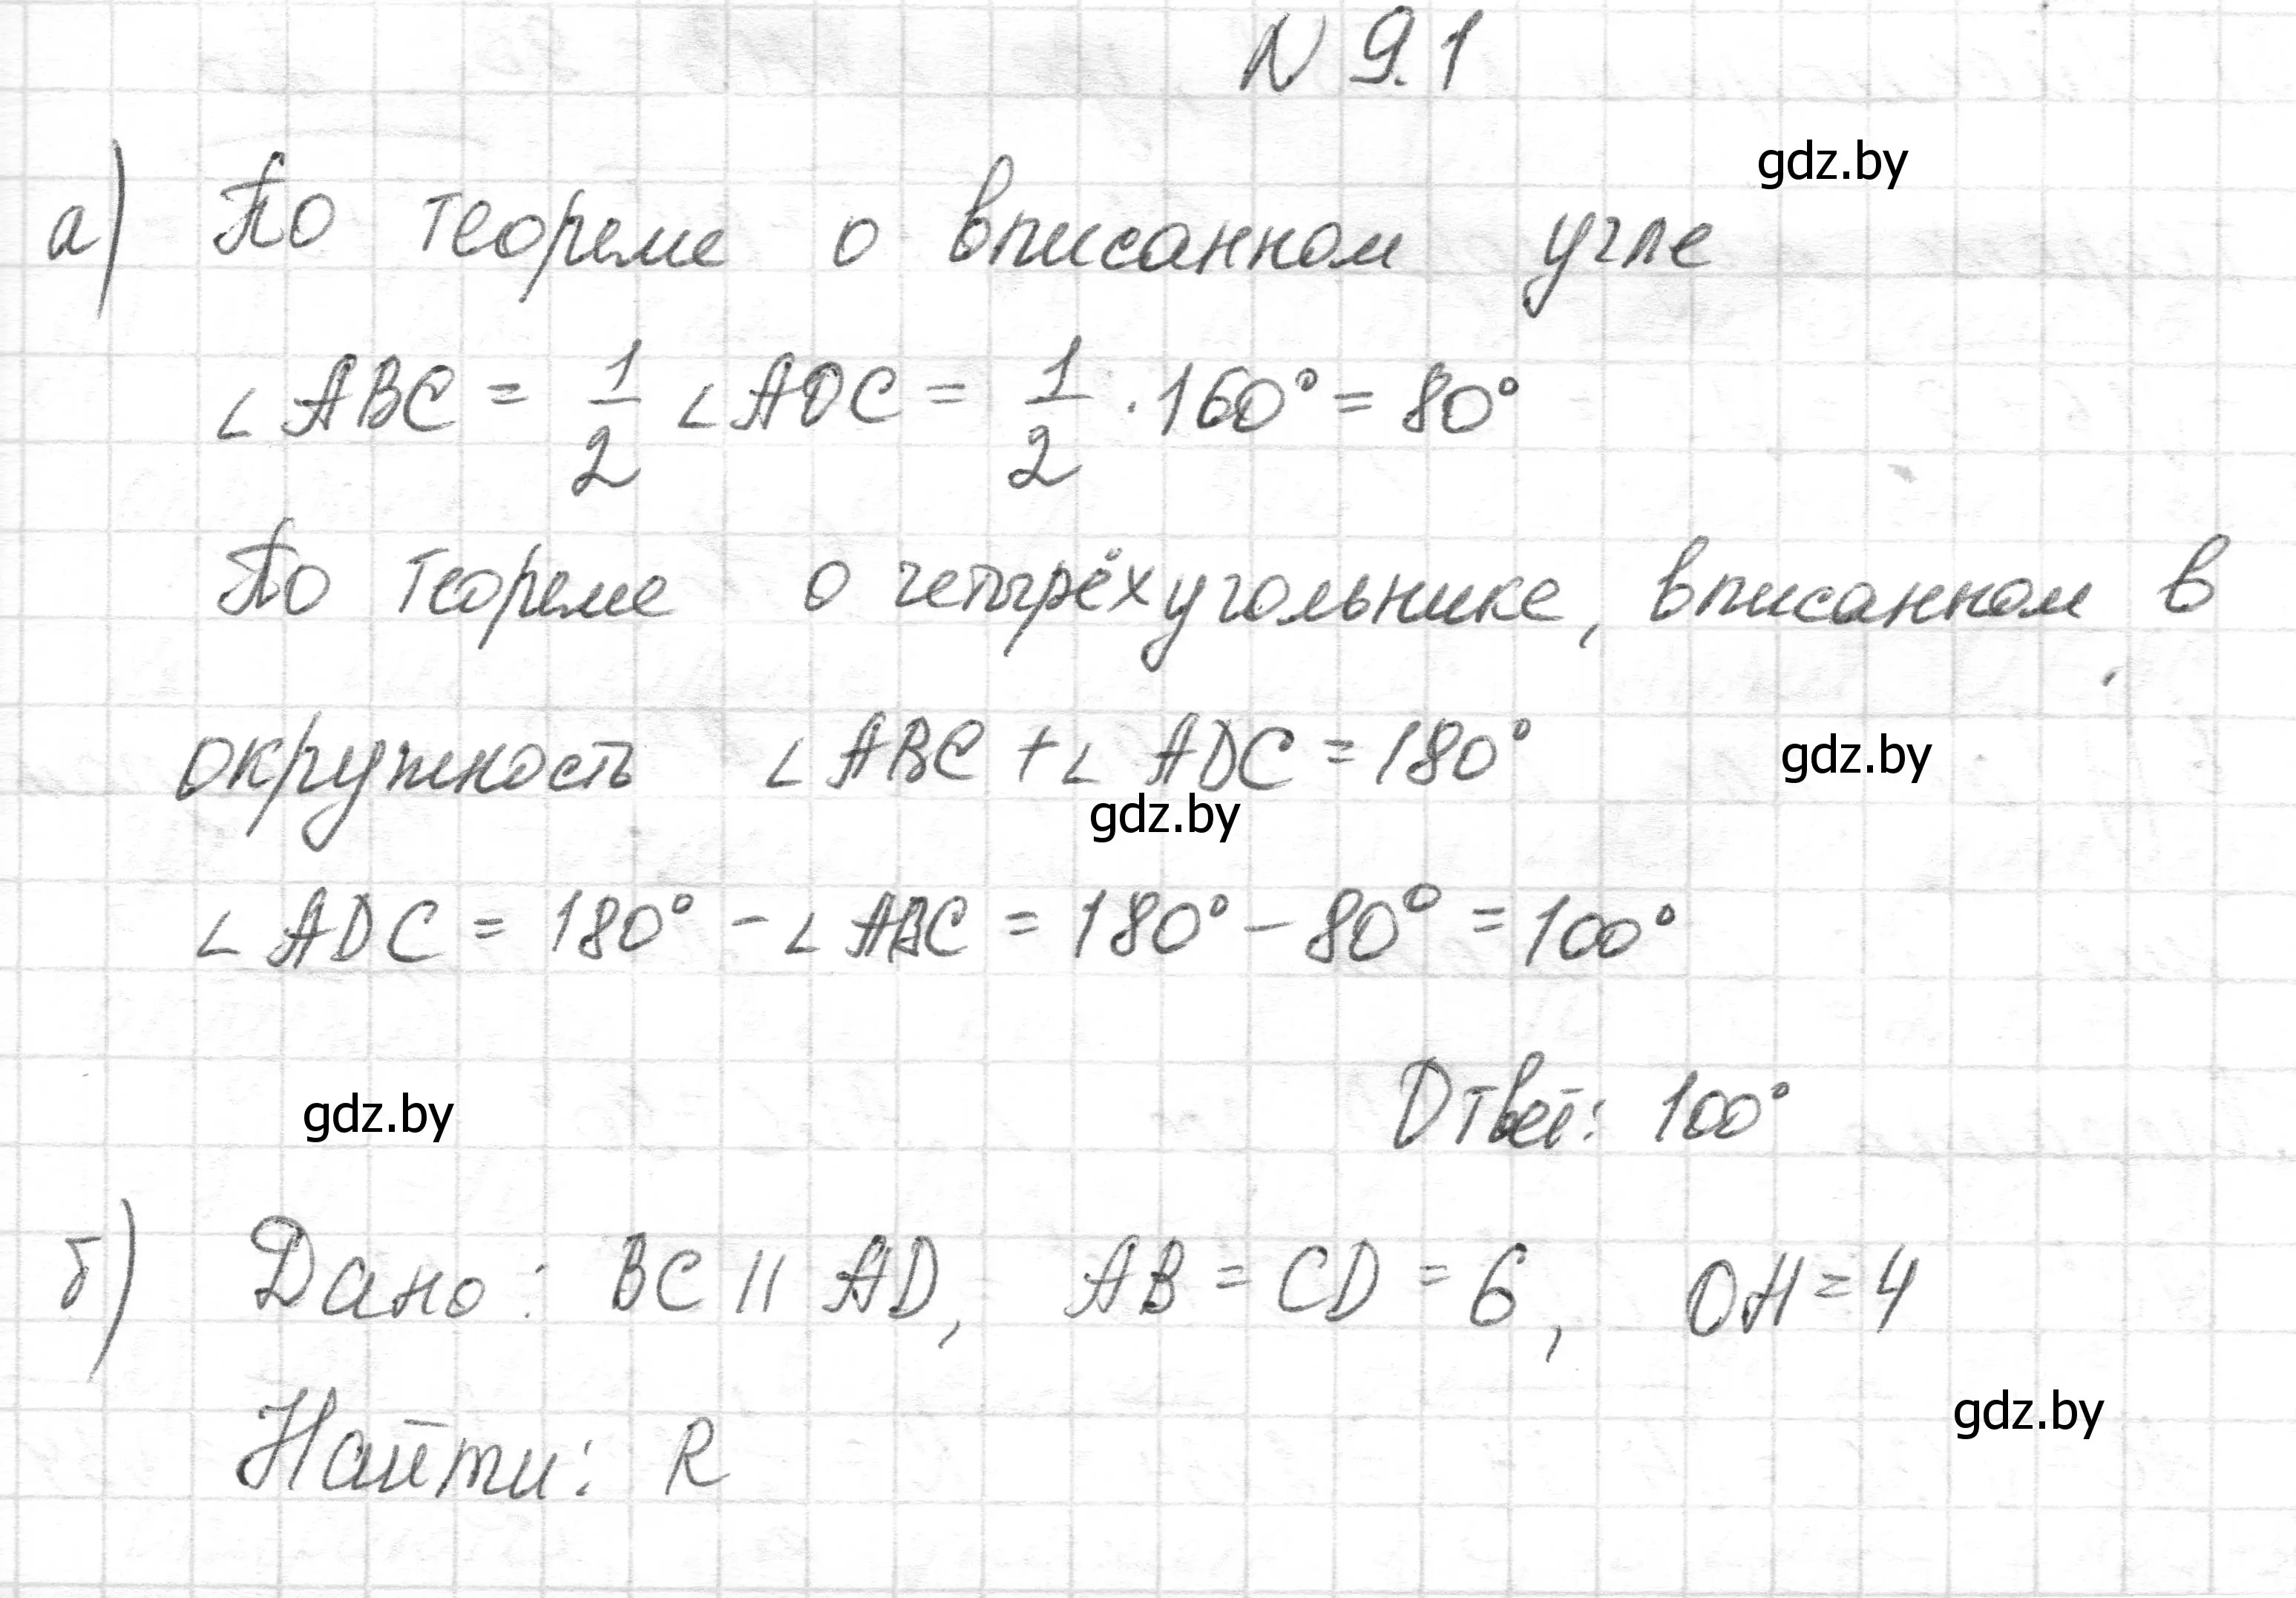 N 9.1
gdz.by
а) По теореме о вписанном угле
∠ABC = 1/2 ∠AOC = 1/2 · 160° = 80°
По теореме о четырёхугольнике, вписанном в
окружность ∠ABC + ∠ADC = 180°
gdz.by
gdz.by
∠ADC = 180° - ∠ABC = 180° - 80° = 100°
Ответ: 100°
gdz.by
б) Дано: BC || AD, AB = CD = 6, OH = 4
Найти: R
gdz.by